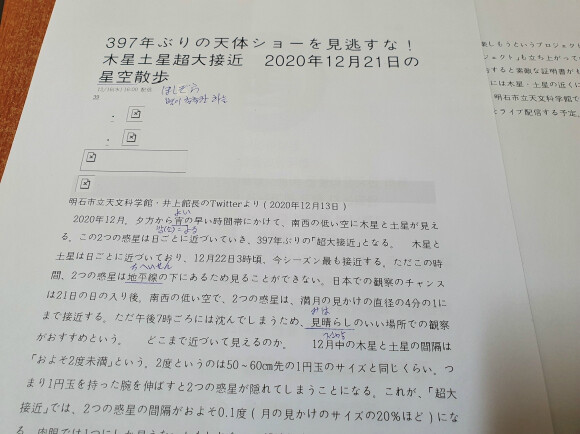 397年ぶりの天体ショーを見逃すな!
木星土星超大接近 2020年12月21日の
星空散歩
12/16(水) 16:00 配信
ほしぞら
38
明石市立天文科学館・井上館長のTwitterより(2020年12月13日)
よい
2020年12月。夕方から宵の早い時間帯にかけて、南西の低い空に木星と土星が見え
る。この2つの惑星は日ごとに近づいていき、397年ぶりの「超大接近」となる。 木星と
土星は日ごとに近づいており、12月22日3時頃、今シーズン最も接近する。ただこの時
ちへいせん
間、2つの惑星は地平線の下にあるため見ることができない。日本での観察のチャンス
は21日の日の入り後。南西の低い空で、2つの惑星は、満月の見かけの直径の4分の1に
みは
まで接近する。ただ午後7時ごろには沈んでしまうため、見晴らしのいい場所での観察
がおすすめという。 どこまで近づいて見えるのか。 12月中の木星と土星の間隔は
「およそ2度未満」という。2度というのは50~60cm先の1円玉のサイズと同じくらい。つ
まり1円玉を持った腕を伸ばすと2つの惑星が隠れてしまうことになる。これが、「超大
接近」では、2つの惑星の間隔がおよそ0.1度(月の見かけのサイズの20%ほど)にな
楽しもうというプロジェクト
ジェクト」も立ち上がってい
すると素敵な証明書がも
には木星・土星の近くに
明石市立天文科学館で
ライブ配信する予定。